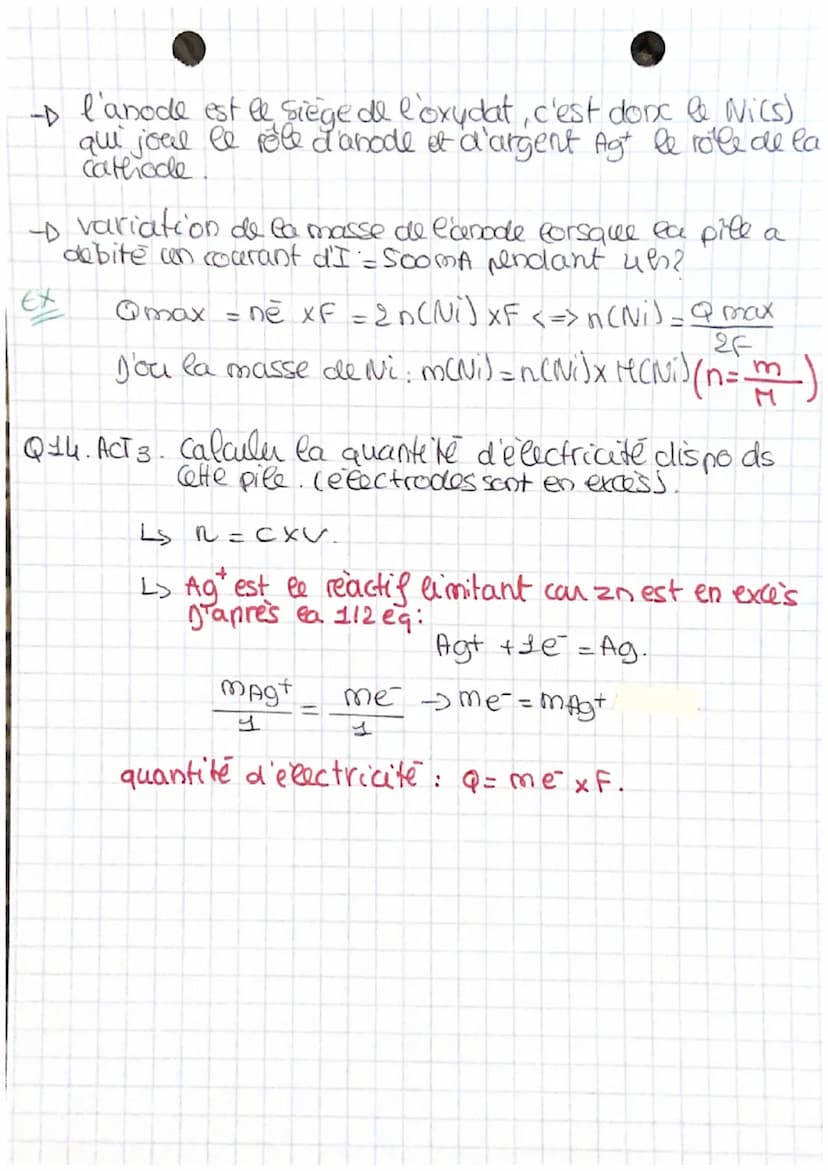 → l'anode est le siège de l'oxydat, c'est donc le Ni(s)
qui joue le rôle d'anode et d'argent Ag+ le rôle de la
cathode.
→ variation de la masse de l'anode lorsque la pile a
débité un courant d'I = 500mA pendant 4h?
Ex
Qmax = nē x F = 2n(Ni) x F <=> n(Ni) = Qmax / 2F
D'où la masse de Ni : m(Ni) = n(Ni) x M(Ni) (n = m / M)
Q14. ACT 3. Calculer la quantité d'électricité dispo ds
cette pile. (électrodes sont en excès).
↳ n = c x v.
↳ Ag+ est le réactif limitant car zn est en excès
D'après la 1/2 eq:
Ag+ + 1e- = Ag.
mAg+ / 1 = me- / 1 → me- = mAg+
quantité d'électricité : Q = me- x F.